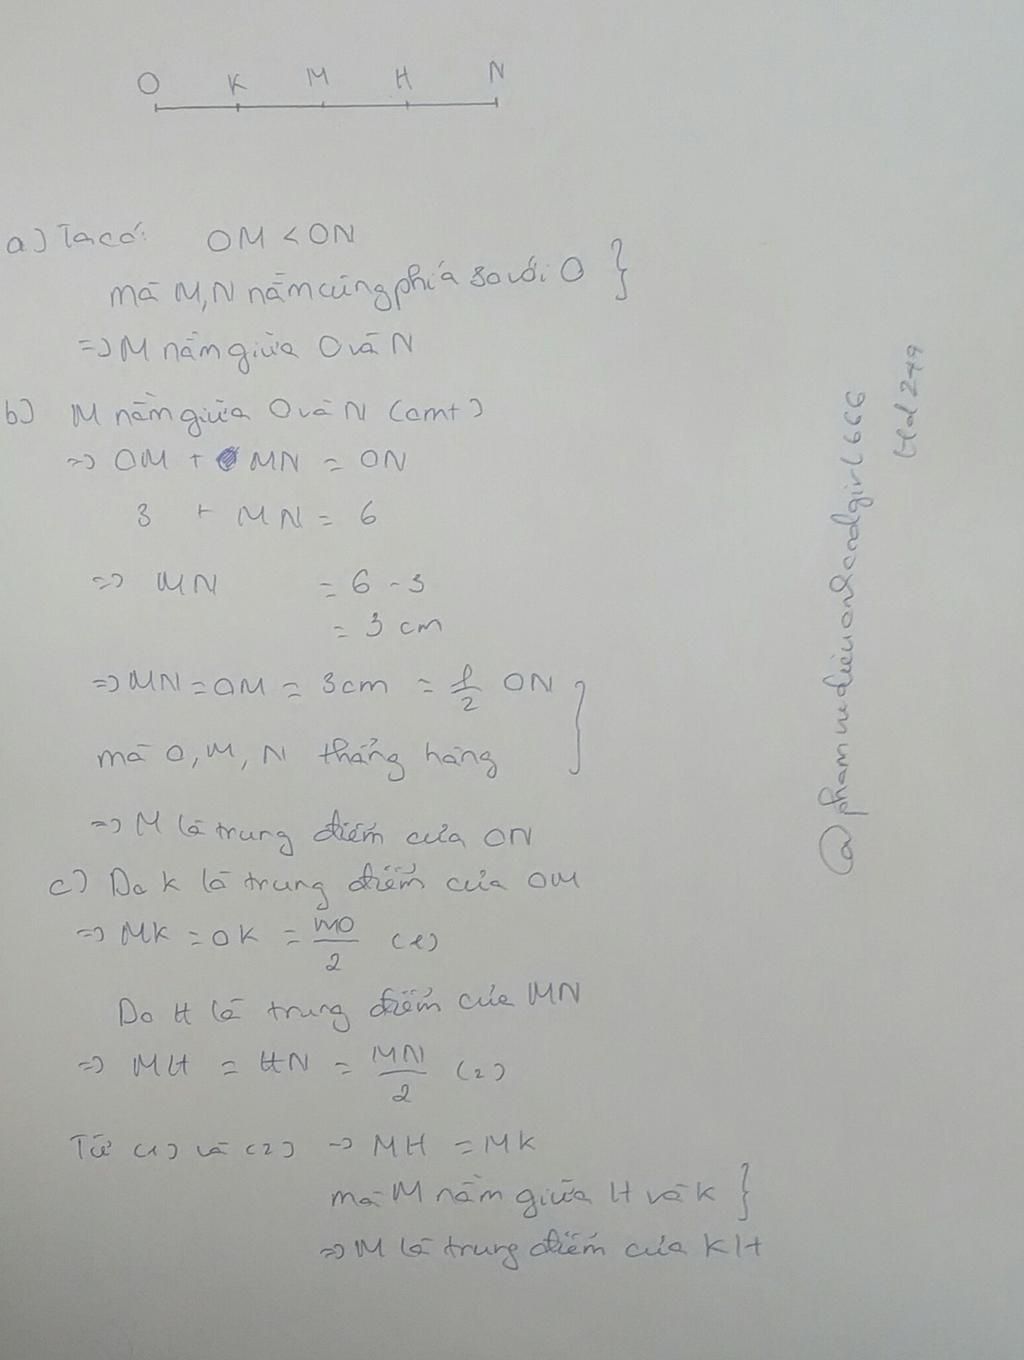 O K M H N
a) Ta có: OM < ON
mà M, N nằm cùng phía so với O }
=> M nằm giữa O và N
b) M nằm giữa O và N (cmt)
=> OM + MN = ON
3 + MN = 6
=> MN = 6 - 3
= 3 cm
=> MN = OM = 3cm = 1/2 ON }
mà O, M, N thẳng hàng
=> M là trung điểm của ON
c) Do K là trung điểm của OM
=> MK = OK = MO/2 (1)
Do H là trung điểm của MN
=> MH = HN = MN/2 (2)
Từ (1) và (2) => MH = MK
mà M nằm giữa H và K }
=> M là trung điểm của KH